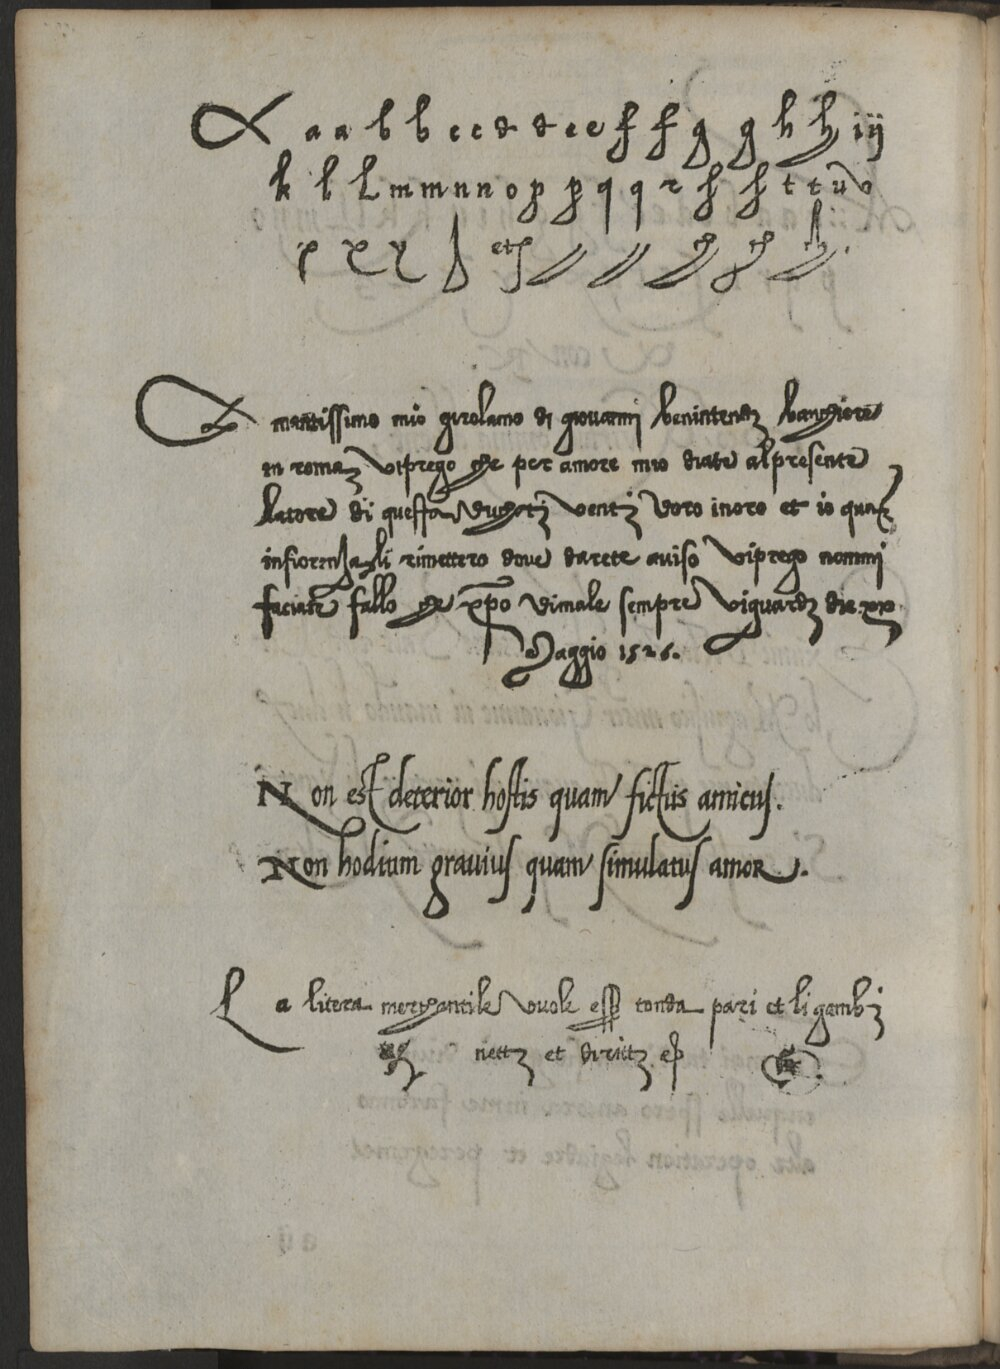 A a a b b c c d d e e f f g g h h i ij
k l l m m n n o p p q q r s s t t u v
x x y et
A mantissimo mio girolamo di giovanni benintendi
in roma vi prego che per amore mio diate al presente
latore di questa ducati venti doro inoro et io qua
in fiorenza li rimettero dove darete aviso vi prego nommi
faciate fallo che xpo di male sempre vi guardi die xx
Maggio 1526.
Non est deterior hostis quam fictus amicus.
Non hodium gravius quam simulatus amor.
La litera merchantile vuole tonda pari et li gambi
netti et diritti